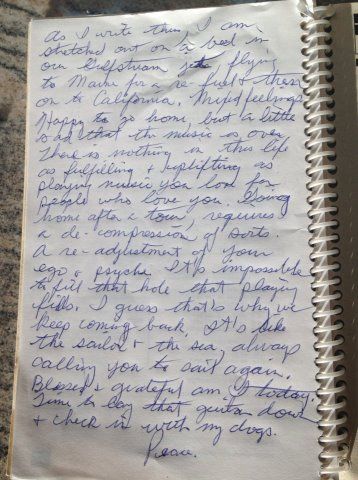 As I write this I am
stretched out on a bed in
our Gulfstream jet flying
to Maine for a re-fuel & then
on to California. Mixed feelings
Happy to go home, but a little
sad that the music is over.
There is nothing in this life
as fulfilling & uplifting as
playing music you love for
people who love you. Going
home after a tour requires
a de-compression of sorts.
A re-adjustment of your
ego & psyche. It's impossible
to fill that hole that playing
fills. I guess that's why we
keep coming back. It's like
the sailor & the sea, always
calling you to sail again.
Blessed & grateful am I today.
Time to lay that guitar down
& check in with my dogs.
Peace.